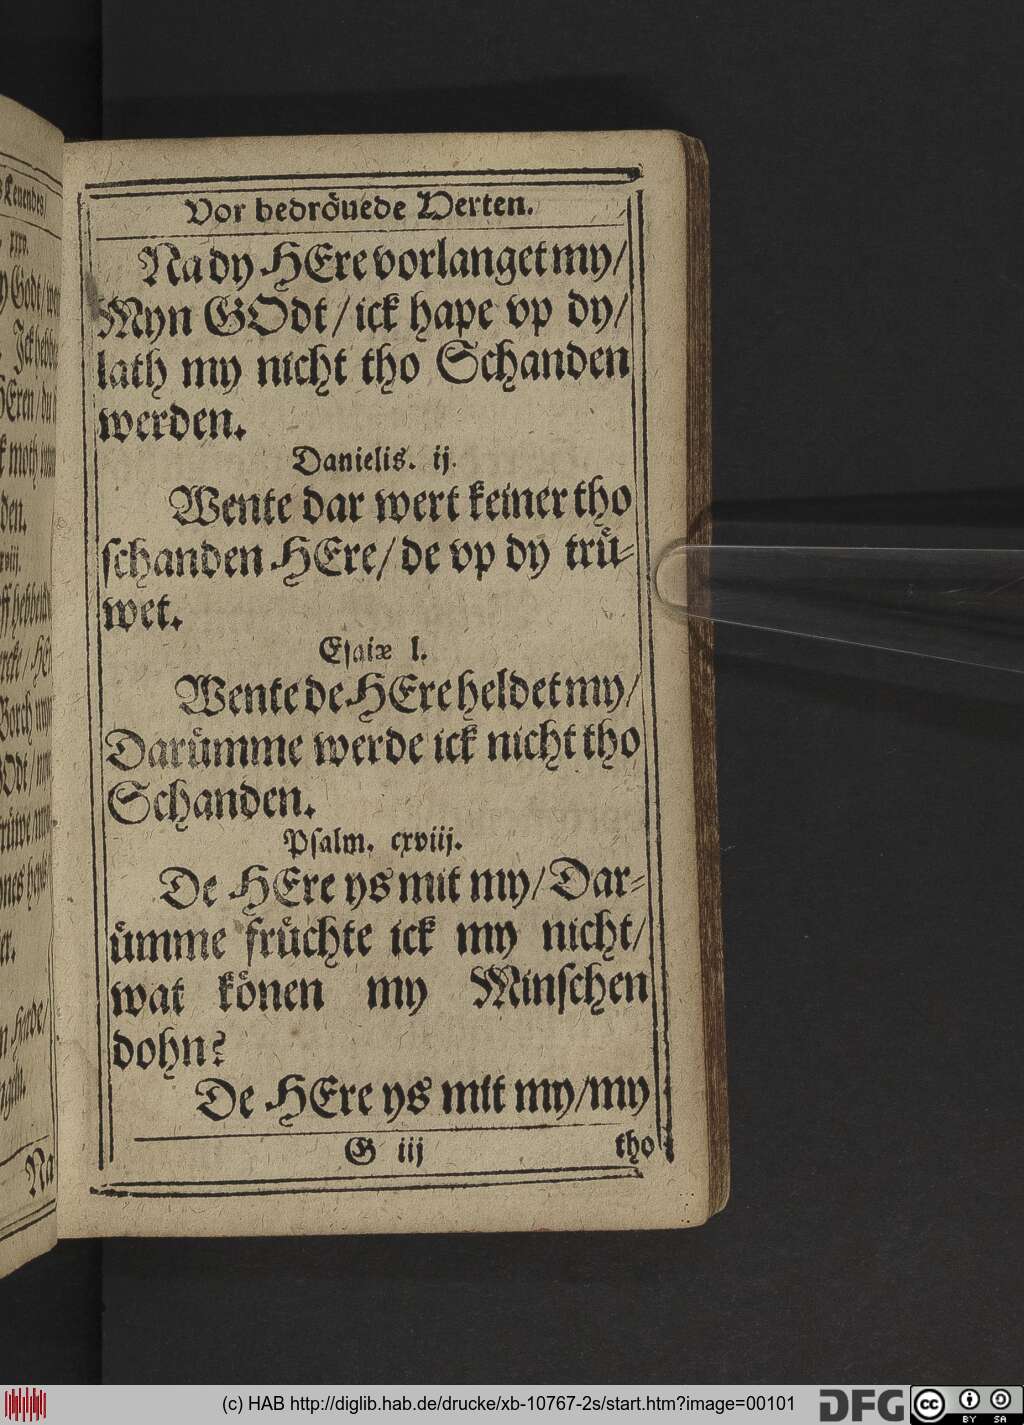 s Leuendes/
xxv.
den.
xviij.
Na
Vor bedröuede Herten.
Na dy HEre vorlanget my/
Myn GOdt / ick hape vp dy/
lath my nicht tho Schanden
werden.
Danielis. ij.
Wente dar wert keiner tho
ſchanden HEre/ de vp dy trü-
wet.
Eſaiæ l.
Wente de HEre heldet my/
Darümme werde ick nicht tho
Schanden.
Pſalm. cxviij.
De HEre ys mit my/ Dar-
ümme früchte ick my nicht/
wat könen my Minſchen
dohn?
De HEre ys mit my/ my
G iij
tho
(c) HAB http://diglib.hab.de/drucke/xb-10767-2s/start.htm?image=00101
DFG
cc
BY SA